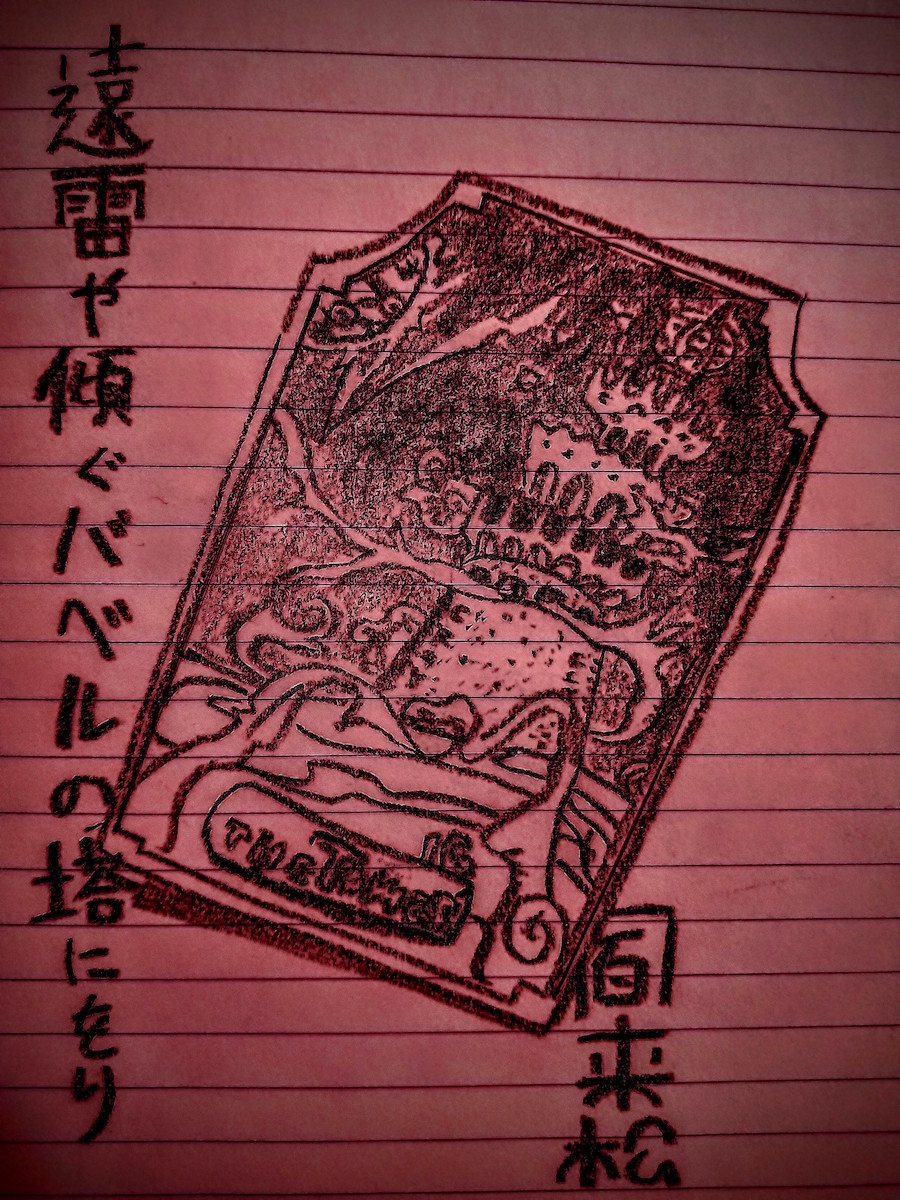 遠雷や傾ぐバベルの塔にをり
16
THE TOWER
来松